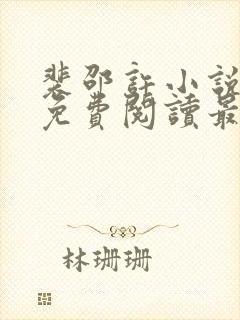 裴邵許小說
免費閱讀最
林珊珊